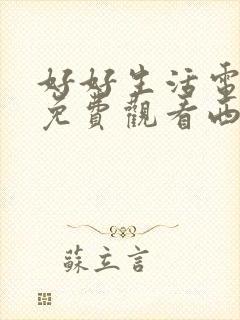 好好生活電
免費觀看西
蘇立言